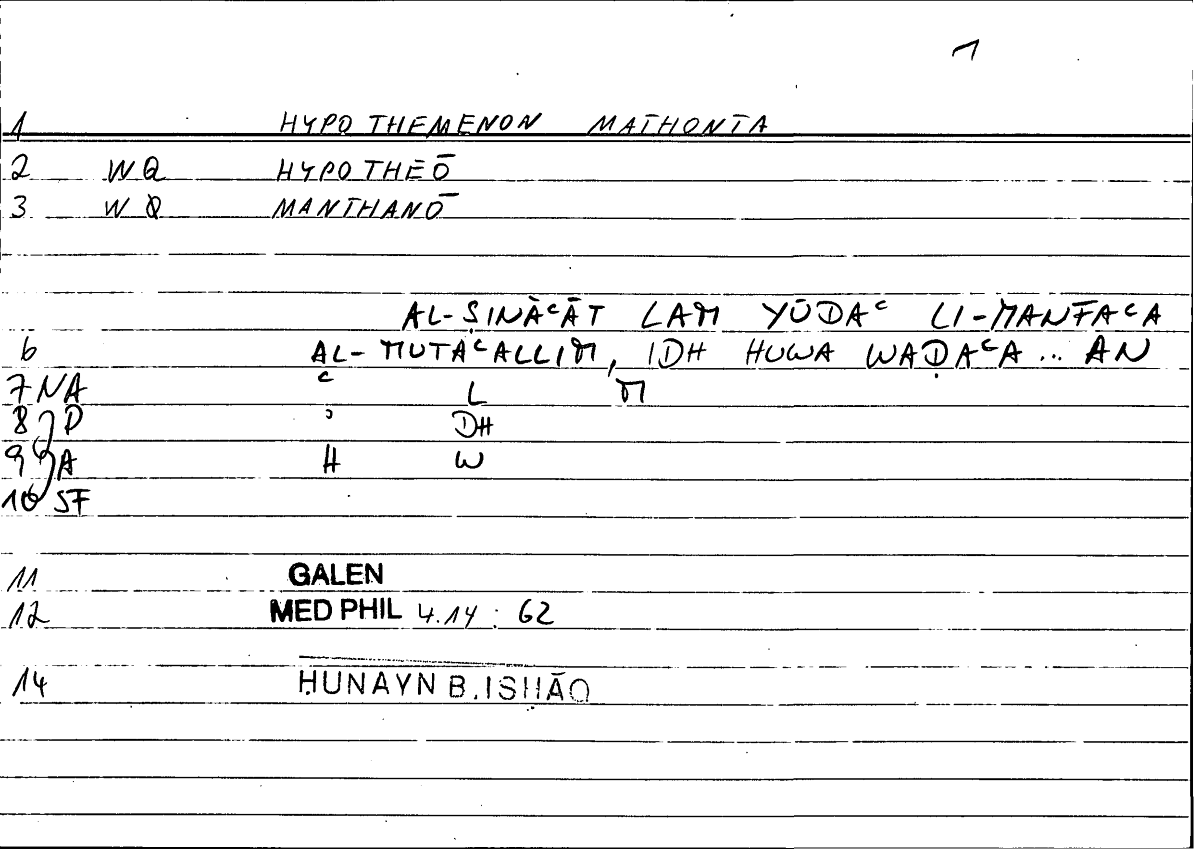 1
1 HYPOTHEMENON MATHONTA
2 WQ HYPOTHEŌ
3 WQ MANTHANŌ
AL-ṢINĀʿĀT LAM YŪDAʿ LI-MANFAʿA
6 AL-MUTAʿALLIM, IDH HUWA WAḌAʿA ... AN
7 NA ʿ L M
8 P ʾ DH
9 A H W
10 SF
11 GALEN
12 MED PHIL 4.14 : 62
14 ḤUNAYN B. ISḤĀQ